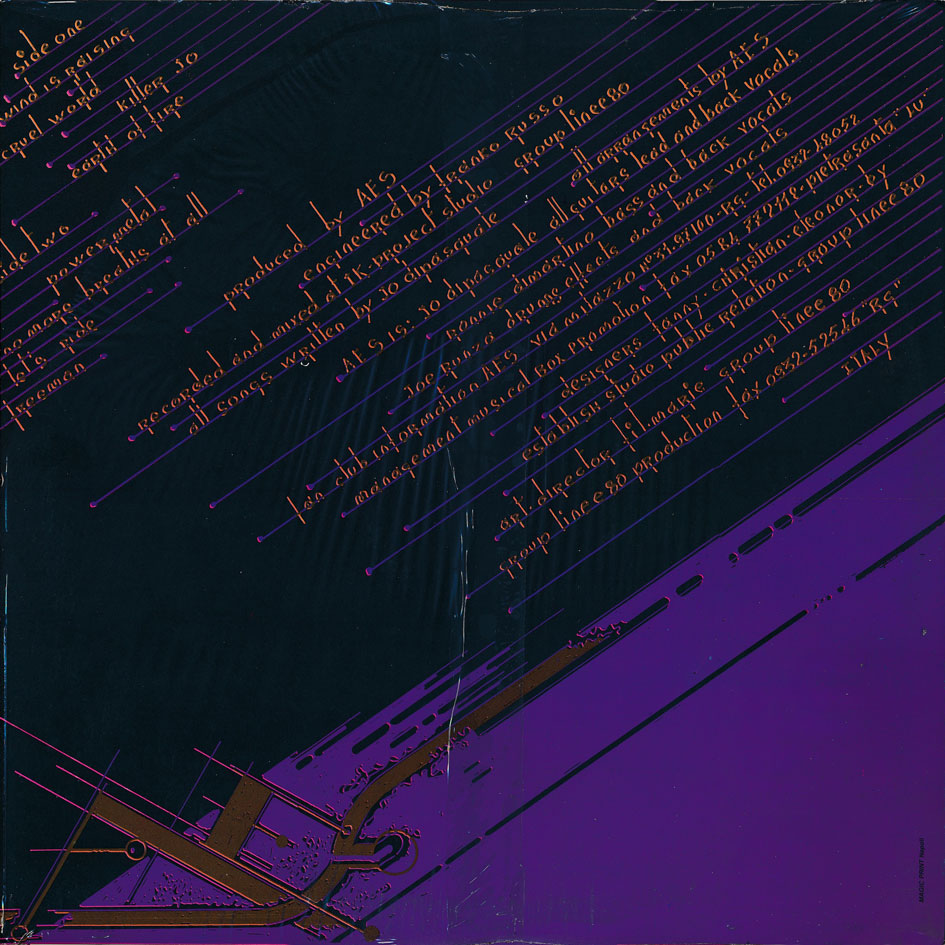 side one
wind is raising
cruel world
killer jo
earth of fire
side two
power metal
no more breaths at all
let's ride
iceman
produced by AFS
engineered by Franko Russo
recorded and mixed at "IK-project" studio group linee 80
all songs written by jo dipasquale
all arrangements by AFS
AFS is: jo dipasquale all guitars lead and back vocals
ronnie dimartino bass and back vocals
joe Russo drums effects and back vocals
fan club information AFS via milazzo
management musical Box promotion fax
designers fanny-christian-eleonor-by
establish studio public relation-group linee 80
art director jil-marie group linee 80
group linee 80 production fax 0932-52546 "Rg"
ITALY
MUSIC PRINT